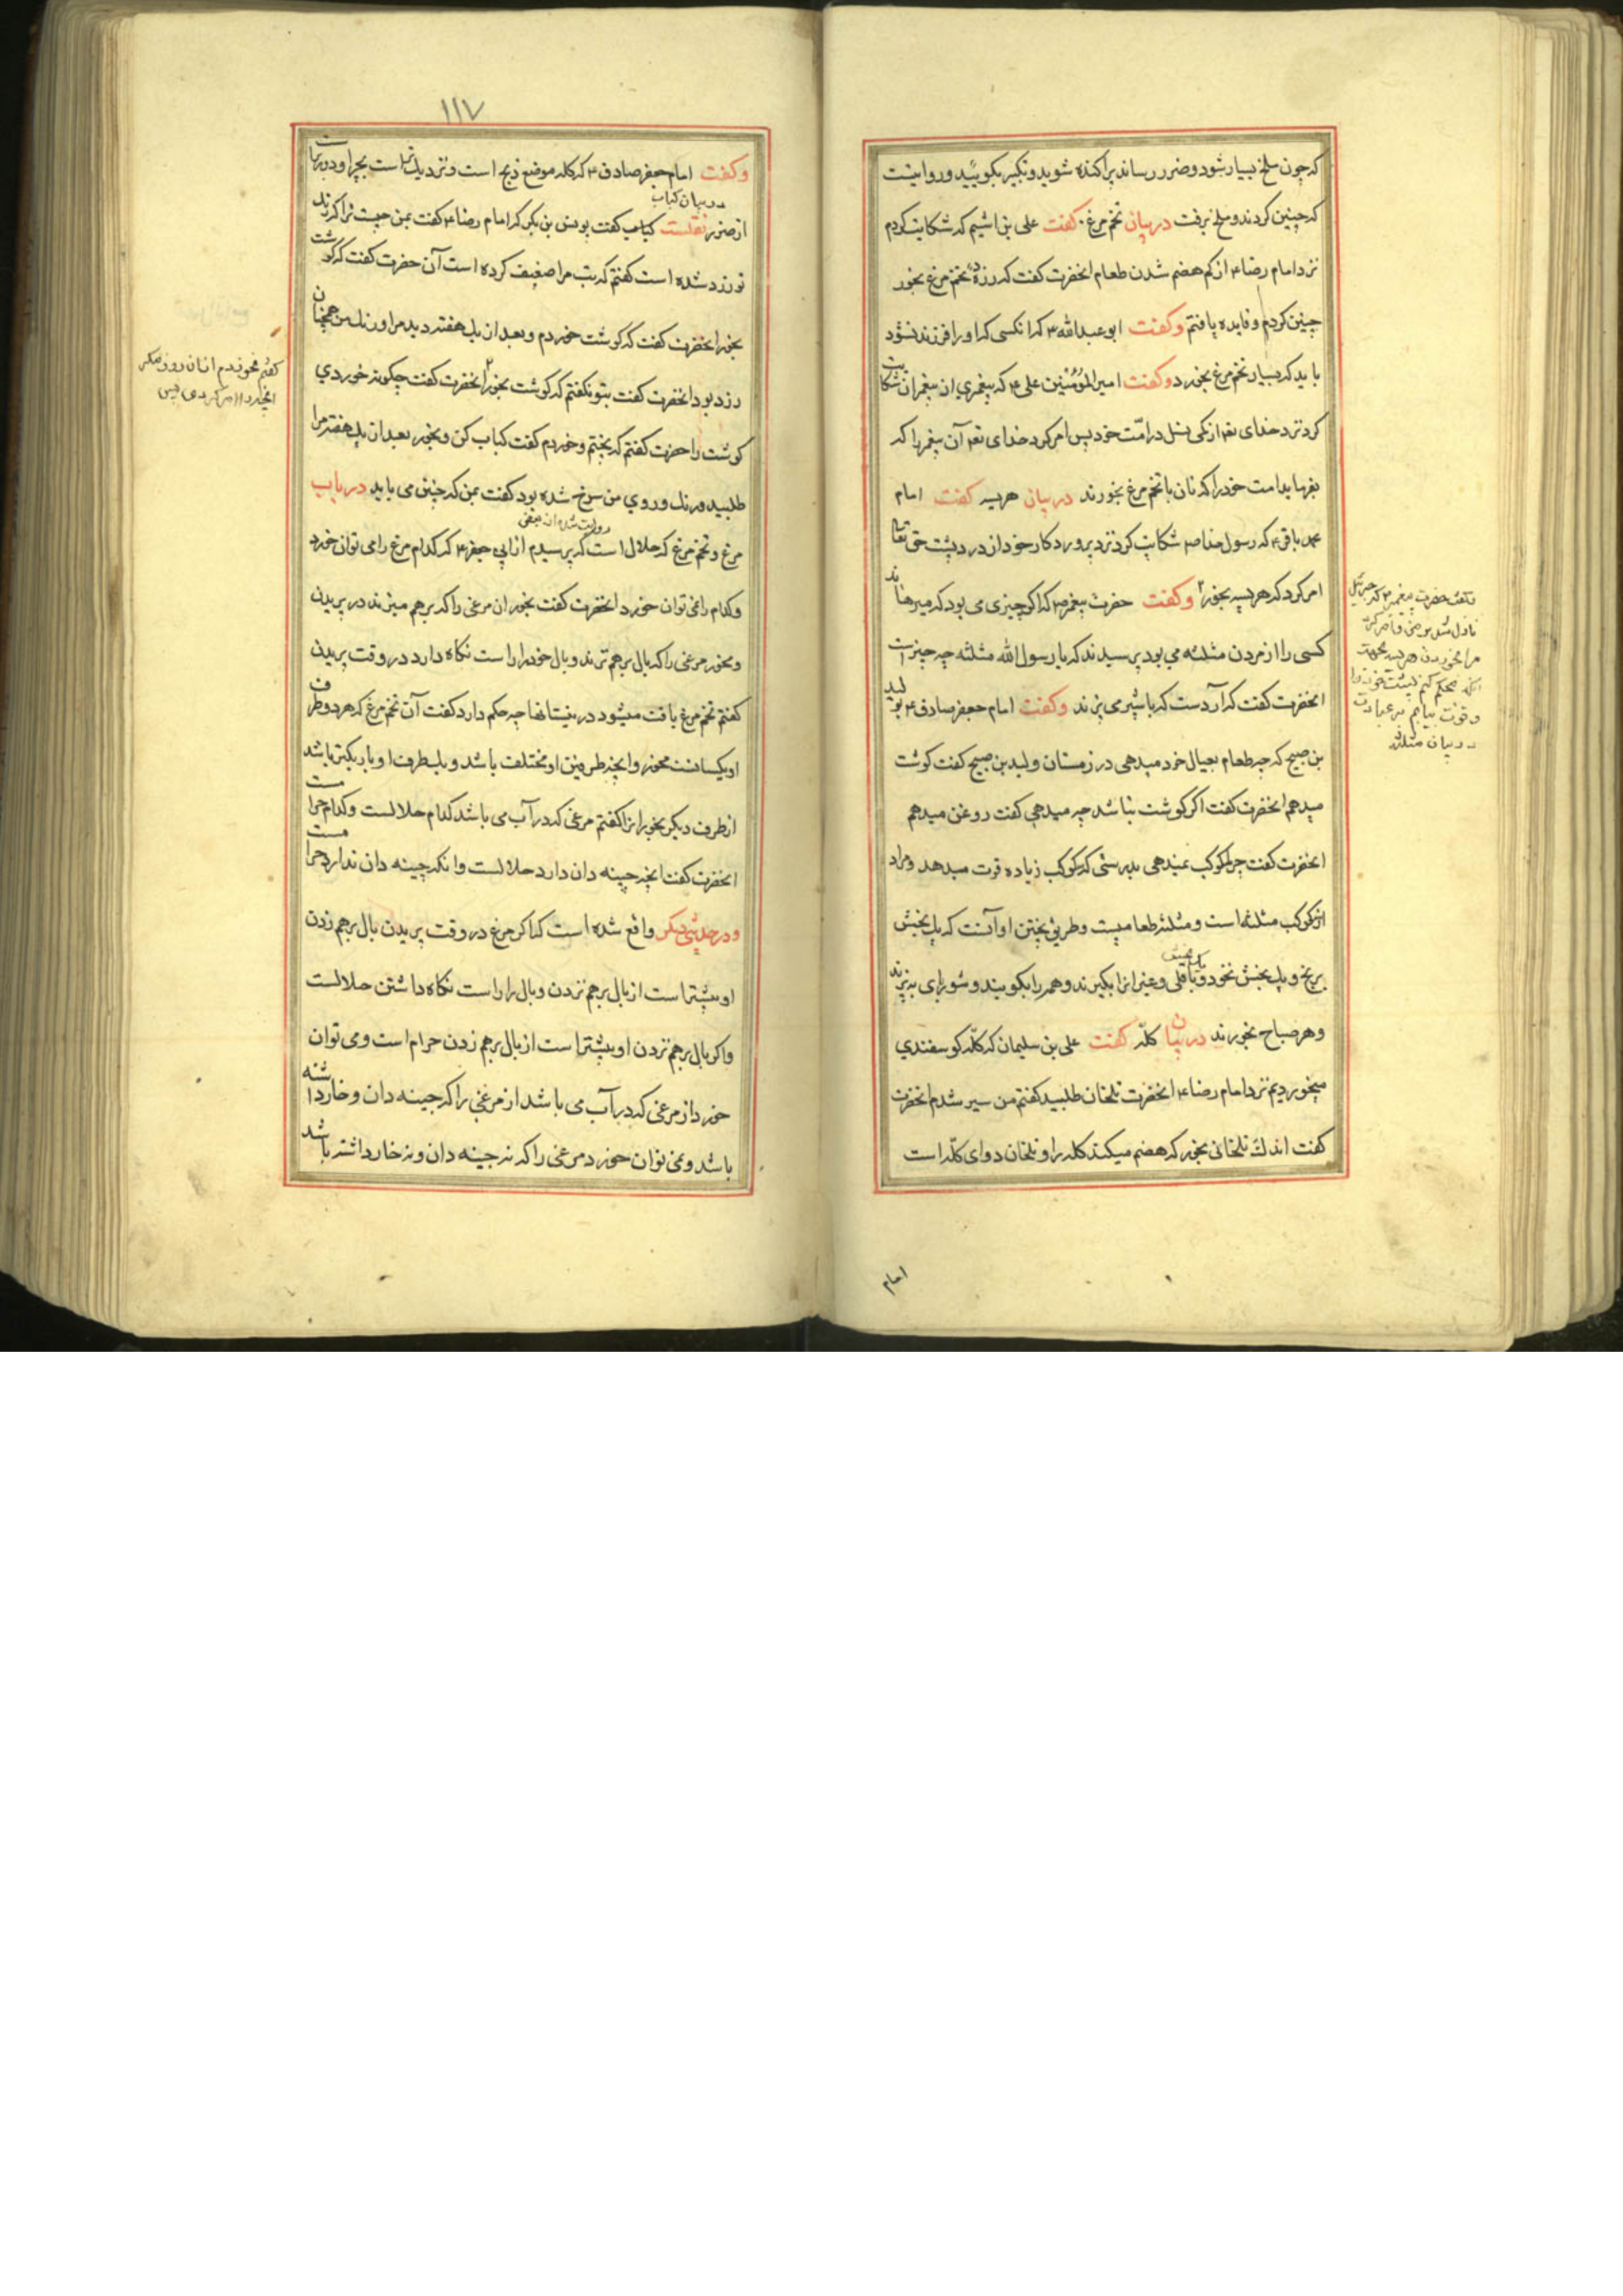 که چون ملخ بسیار شود و ضرر رساند پراکنده شوید و تکبیر بکویید و روایتست
که چنین کردند و ملخ برفت در بیان تخم مرغ کفت علی بن اشیم که شکایت کردم
نزد امام رضا ۴ از کم هضم شدن طعام انحضرت کفت که زرده تخم مرغ بخور
چنین کردم و فایده یافتم و کفت ابو عبدالله ۳ که انکسی که او را فرزند نشود
باید که بسیار تخم مرغ بخورد و کفت امیر المؤمنین علی ۴ که پیغمبری از پیغمبران شکایت
کرد نزد خدای تعم از کمی نسل در امّت خود پس امر کرد خدای تعم آن پیغمبر را که
بفرماید امت خود را که نان با تخم مرغ بخورند در بیان هریسه کفت امام
محمد باقر ۴ که رسول خدا ص شکایت کرد نزد پروردکار خود از درد پشت حق تعا
امر کرد که هریسه بخور و کفت حضرت پیغمبر ص که اکر چیزی می بود که میرهاند
کسی را از مردن مثلثه می بود پرسیدند که یا رسول الله مثلثه چه چیز است
انحضرت کفت که آردست که با شیر می پزند و کفت امام جعفر صادق ۴ بولید
بن صبیح که چه طعام بعیال خود میدهی در زمستان ولید بن صبیح کفت کوشت
میدهم انحضرت کفت اکر کوشت نباشد چه میدهی کفت روغن میدهم
انحضرت کفت چرا کوکب نمیدهی بدرستی که کوکب زیاده قوت میدهد و مراد
از کوکب مثلثه است و مثلثه طعامیست و طریق پختن او آنست که یک بخش
برنج و یک بخش نخود و باقلی و غیر انرا بکیرند و همه را بکوبند و شوربای بپزند
و هر صباح بخورند در بیان کلّه کفت علی بن سلیمان که کلّه کوسفندی
میخوردیم نزد امام رضا ۴ انحضرت تلخان طلبید کفتم من سیر شدم انحضرت
کفت اندک تلخانی بخور که هضم میکند کله را و تلخان دوای کلّه است
وکفت حضرت پیغمبر ۳ که جبرئیل
نازل شد بر من و امر کرد
مرا بخوردن هریسه بجهت
انکه محکم کنم پشت خود را
و قوت بیابم بر عبادت
در بیان مثلثه
امام
۱۱۷
و کفت امام جعفر صادق ۴ که کله موضع ذبح است و نزدیک تر است بچرا و دورتر است
در بیان کباب
از ضرر نقلست کباب کفت یونس بن بکر که امام رضا ۴ کفت بمن چیست ترا که رنک
تو زرد شده است کفتم که تب مرا ضعیف کرده است آن حضرت کفت که کوشت
بخور انحضرت کفت که کوشت خوردم و بعد از یک هفته دید مرا و رنک من همچنان
زرد بود انحضرت کفت بتو نکفتم که کوشت بخور انحضرت کفت چکونه خوردی
کوشت را حضرت کفتم که پختم و خوردم کفت کباب کن و بخور بعد از یک هفته مرا
طلبید و رنک و روی من سرخ شده بود کفت بمن که چنین می باید در باب
روایت شده از بعضی
مرغ و تخم مرغ که حلال است که پرسیدم از ابی جعفر ۴ که کدام مرغ را می توان خورد
و کدام را نمی توان خورد انحضرت کفت بخور ان مرغی را که بر هم میزند در پریدن
و مخور مرغی را که بال بر هم نزند و بال خود را راست نکاه دارد در وقت پریدن
کفتم تخم مرغ یافت میشود در نیستانها چه حکم دارد کفت آن تخم مرغ که هر دو طرف
او یکسانست مخور و انچه طرفین او مختلف باشد و یکطرف او باریکتر باشد
از طرف دیکر بخور انرا کفتم مرغی که در آب می باشد کدام حلالست و کدام حرامست
انحضرت کفت انچه چینه دان دارد حلالست و انکه چینه دان ندارد حرامست
و در حدیثی دیکر واقع شده است که اکر مرغ در وقت پریدن بال بر هم زدن
او بیشتر است از بال بر هم نزدن و بال را راست نکاه داشتن حلالست
و اکر بال بر هم نزدن او بیشتر است از بال بر هم زدن حرام است و می توان
خورد از مرغی که در آب می باشد از مرغی را که چینه دان و خار داشته
باشد و نمی توان خورد مرغی را که نه چینه دان و نه خار داشته باشد